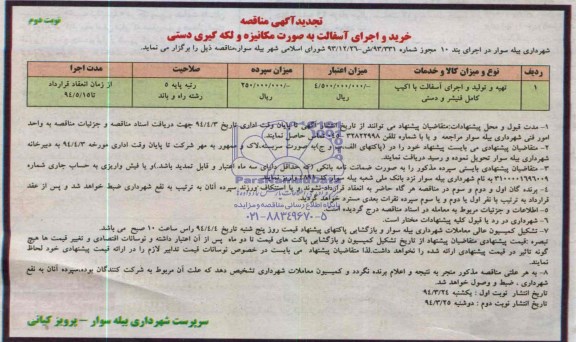 نوبت دوم
تجدیدآگهی مناقصه
خرید و اجرای آسفالت به صورت مکانیزه و لکه گیری دستی
شهرداری بیله سوار در اجرای بند ۱۰ مجوز شماره ۹۳/۳۳۱/ش-۹۳/۱۲/۲۶ شورای اسلامی شهر بیله سوار،مناقصه ذیل را برگزار می نماید.
ردیف نوع و میزان کالا و خدمات میزان اعتبار میزان سپرده صلاحیت مدت اجرا
۱ تهیه و تولید و اجرای آسفالت با اکیپ ۴/۵۰۰/۰۰۰/۰۰۰/- ۲۵۰/۰۰۰/۰۰۰/- رتبه پایه ۵ از زمان انعقاد قرارداد
کامل فنیشر و دستی ریال ریال رشته راه و باند تا ۹۴/۵/۱۵
۱- مدت قبول و محل پیشنهادات:متقاضیان پیشنهاد می توانند از تاریخ تا پایان وقت اداری تاریخ ۹۴/۴/۳ جهت دریافت اسناد مناقصه و جزئیات مناقصه به واحد
امور فنی شهرداری بیله سوار مراجعه و یا با شماره تلفن ۳۲۸۲۲۹۹۸ حاصل نمایند.
۲- متقاضیان پیشنهادی می بایست پیشنهاد خود را در (پاکتهای الف به صورت سربسته،لاک و ممهور به مهر شرکت تا پایان وقت اداری مورخه ۹۴/۴/۳ به دبیرخانه
شهرداری بیله سوار تحویل نموده و رسید دریافت نمایند.
۳- متقاضیان پیشنهادی بایستی سپرده مذکور را به صورت ضمانت نامه بانکی (که حداقل دارای سه ماه اعتبار و قابل تمدید باشد.)و یا فیش واریزی به حساب جاری شماره
به نام شهرداری بیله سوار نزد بانک ملی شعبه بیله سوار واریز نمایند.
۴- برنده گان اول و دوم و سوم در مناقصه هر گاه حاضر به انعقاد قرارداد نشوند و یا استنکاف ورزند سپرده آنان به ترتیب به نفع شهرداری ضبط خواهد شد و پس از عقد
قرارداد به ترتیب با نفر اول یا دوم و یا سوم سپرده نفرات بعدی مسترد خواهد گردید.
۵- اطلاعات و جزئیات مربوط به معامله در اسناد مناقصه درج گردیده است.
۶- شهرداری در رد یا قبول کلیه پیشنهادات مختار است.
۷- تشکیل کمیسیون عالی معاملات شهرداری بیله سوار و بازگشایی پاکتهای پیشنهاد قیمت روز پنج شنبه تاریخ ۹۴/۴/۴ راس ساعت ۱۰ صبح می باشد.
تبصره :قیمت پیشنهادی متقاضیان پیشنهاد از تاریخ تشکیل کمیسیون و بازگشایی پاکت های قیمت تا دو ماه پس از آن اعتبار داشته و نوسانات اقتصادی و تغییر قیمت ها هیچ
گونه تاثیر در قیمت پیشنهادی ارائه شده را نخواهد داشت.لذا متقاضیان پیشنهاد می بایست در خصوص نوسانات قیمت تدابیر لازم را در ارائه قیمت پیشنهادی خود لحاظ
نمایند.
۸- به هر علتی مناقصه مذکور منجر به نتیجه و اعلام برنده نگردد و کمیسیون معاملات شهرداری تشخیص دهد که علت آن مربوط به شرکت کنندگان بوده،سپرده آنان به نفع
شهرداری ، ضبط و وصول خواهد شد.
تاریخ انتشار نوبت اول : یکشنبه ۹۴/۳/۲۴
تاریخ انتشار نوبت دوم : دوشنبه ۹۴/۳/۲۵
سرپرست شهرداری بیله سوار – پرویز کیانی
پایگاه اطلاع رسانی مناقصه و مزایده
۰۲۱-۸۸۳۴۹۶۷۰-۵